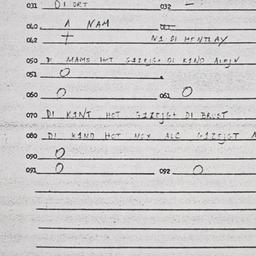 031 DI ORT 032 –
040 A NAM
042 † NI DI HENTLAY
050 DI MAME HOT GIZEJGT DI KIND ALEJN
051 O
060 O 061 O
070 DI KINT HOT GIZEJGT DI BRUST
080 DI KIND HOT NOX ALC GIZEJGT A
090 O
091 O 092 O